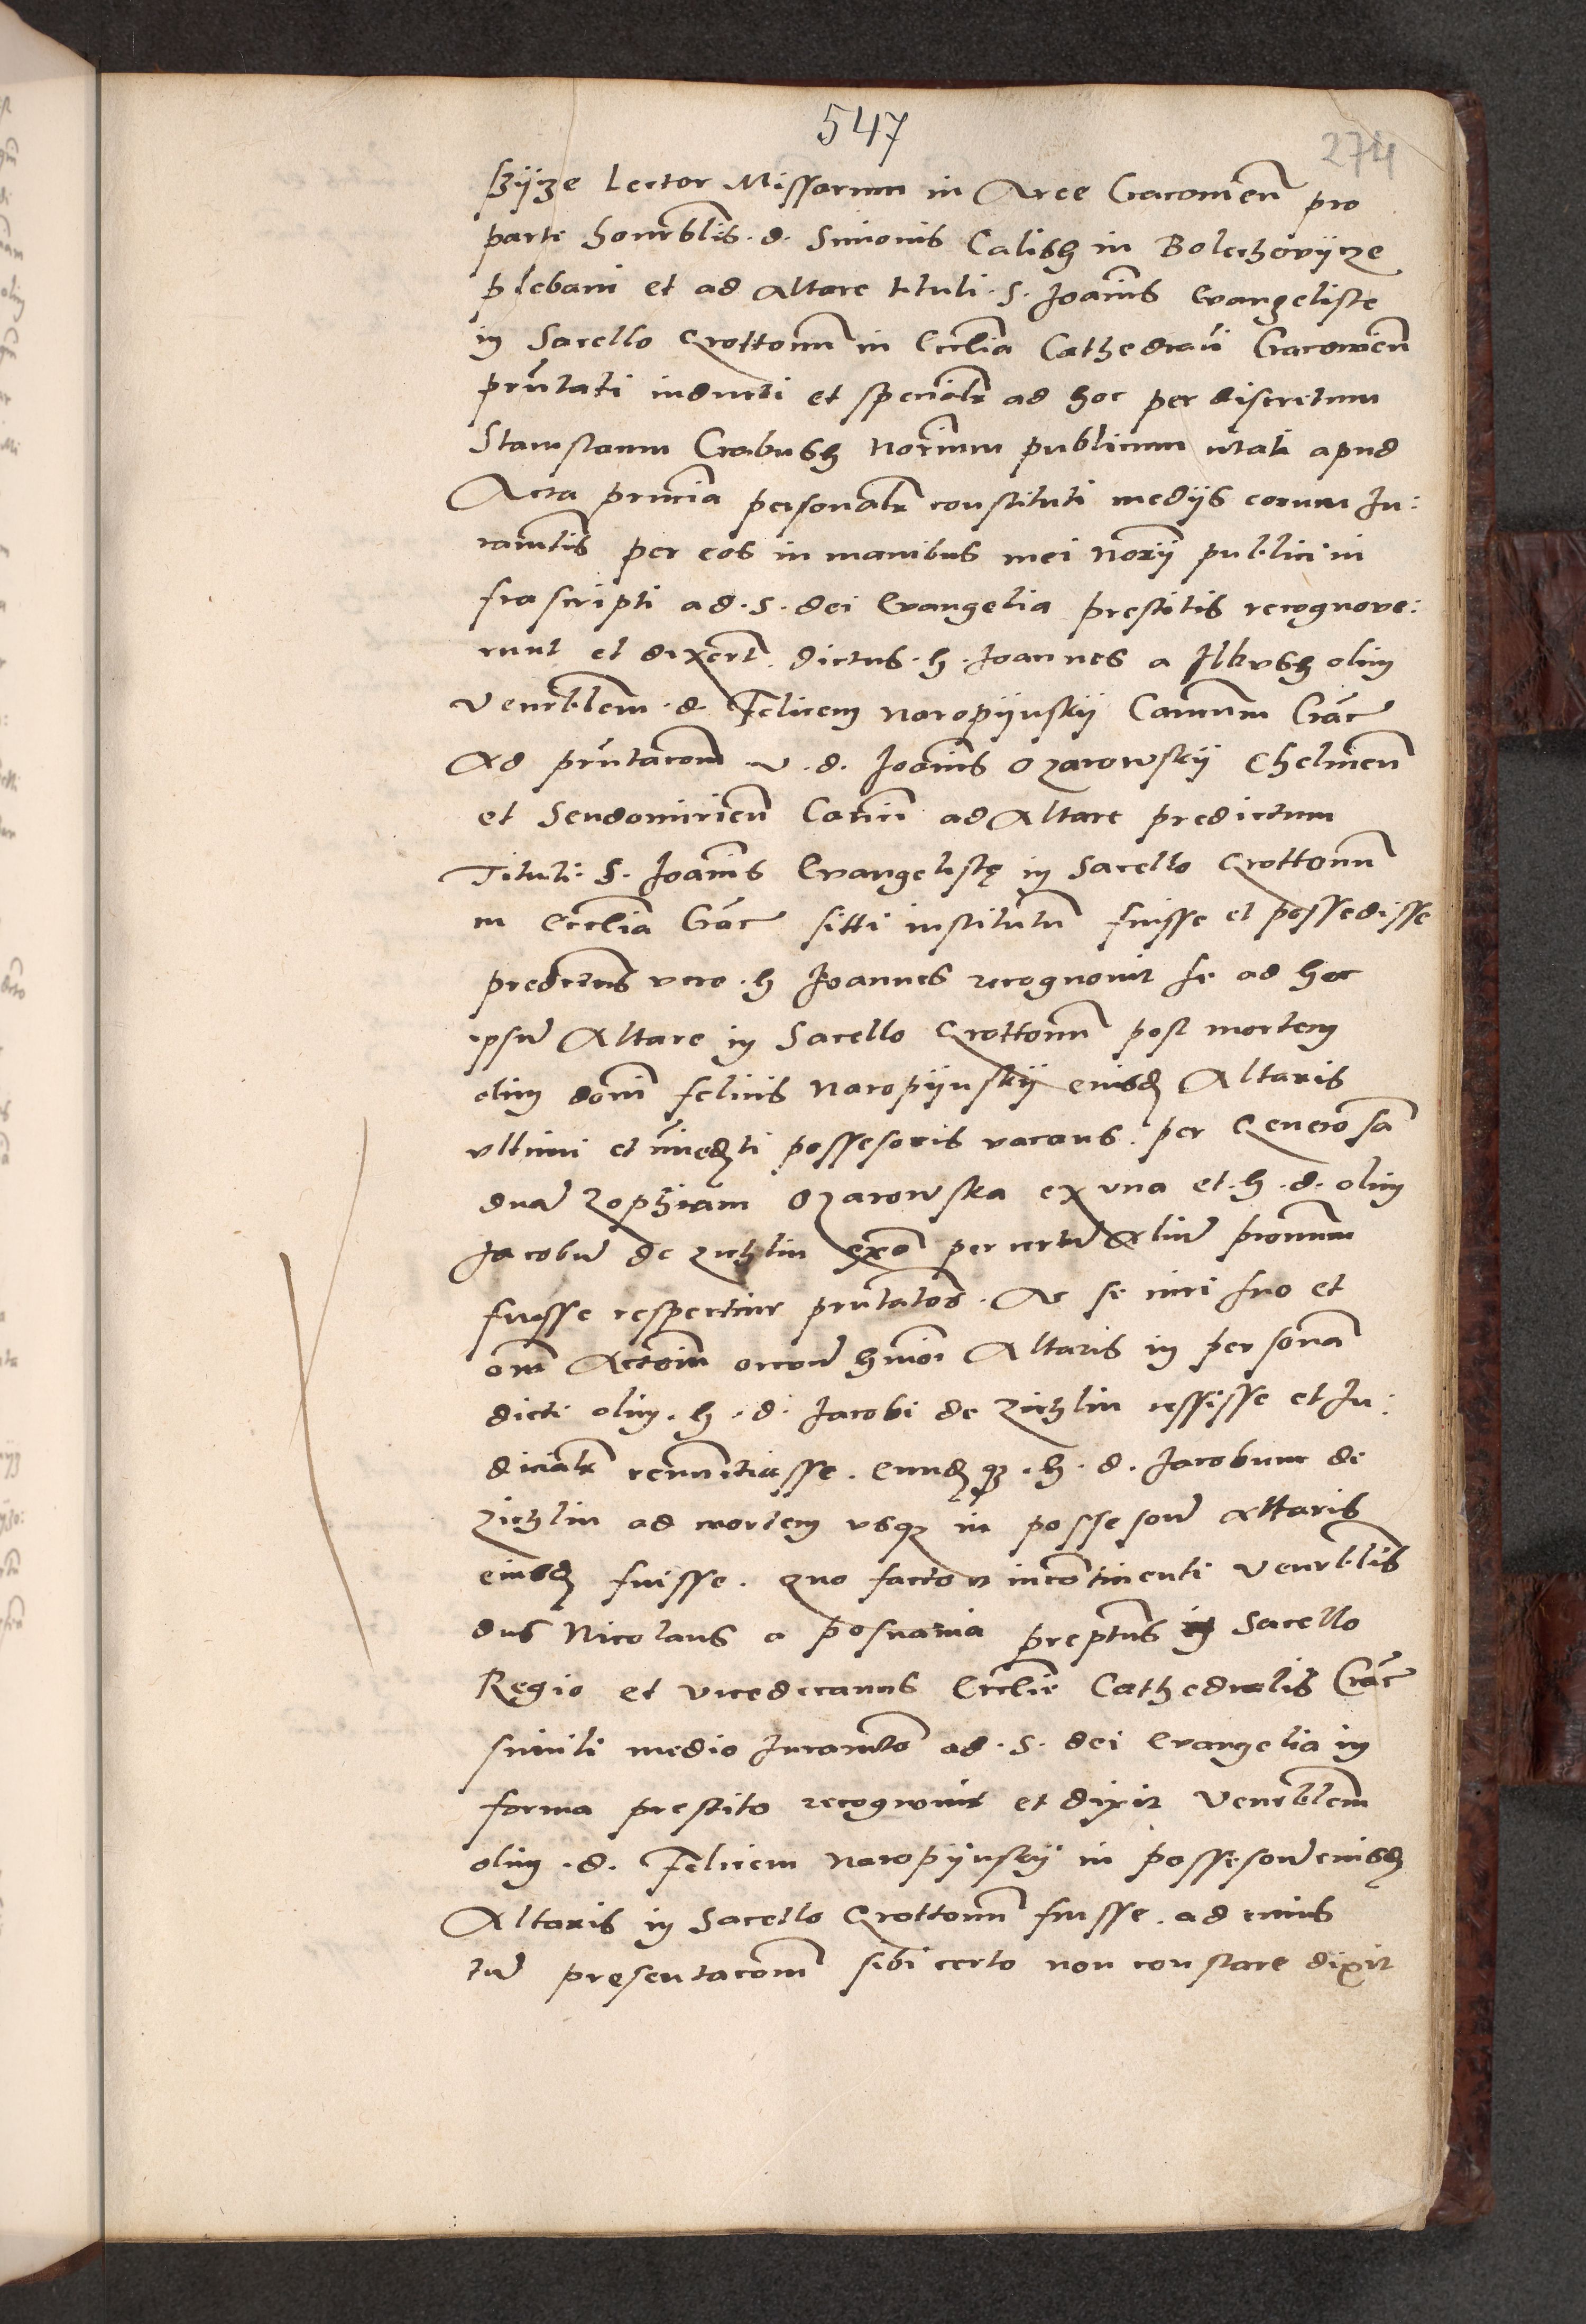 547
274
szijze Lector Missarum in Arce Cracovien pro
parte honrblis. d. Simonis Calish in Bolechovijcze
plebani et ad Altare tituli. S. Joannis Evangeliste
in Sacello Grottonum in Ecclia Cathedrali Cracovien
prntati inducti et specialr ad hoc per discretum
Stanislaum Grabush norium publicum citati apud
Acta prncia personalr constituti medijs eorum Ju:
ramtis per eos in manibus mei norij publici in
frascripti ad. S. dei Evangelia prestitis recognove:
runt et dixert. dictus. h. Joannes a Ilkush olim
Venrblem. d. Felicem Naropijnskij Cancum Crac
Ad prntacom v. d. Joannis Ozarowskij Chelmen
et Sendomirien Canci ad Altare predictum
Tituli. S. Joannis Evangelistę in Sacello Grottonum
in Ecclia Crac sitti institutum fuisse et possedisse
predictus vero. h Joannes recognovit se ad hoc
ipsum Altare in Sacello Grottonum post mortem
olim domi felicis Naropijnskij eiusdem Altaris
ultimi et imediati possessoris vacans. per Generosa
dnam Zophiam Ozarowska ex una et. h. d. olim
Jacobum de Zichlin exo per certum Alium pronum
fuisse respective prntatos. Ac se iuri suo et
omi Actioni occone hmoi Altaris in persona
dicti olim. h. d. Jacobi de Zichlin cessisse et Ju:
dicialr renuntiasse. eundemque. h. d. Jacobum de
Zichlin ad mortem usque in possesone Altaris
eiusdem fuisse. Quo facto et incontinenti Venrblis
dns Nicolaus a posnania preptus in Sacello
Regio et vicedecanus Ecclie Cathedralis Crac
simili medio Juramto ad. S. dei Evangelia in
forma prestito recognovit et dixit Venrblem
olim. d. Felicem Naropijnskij in possesone eiusdem
Altaris in Sacello Grottonum fuisse. ad cuius
tum presentacom sibi certo non constare dixit